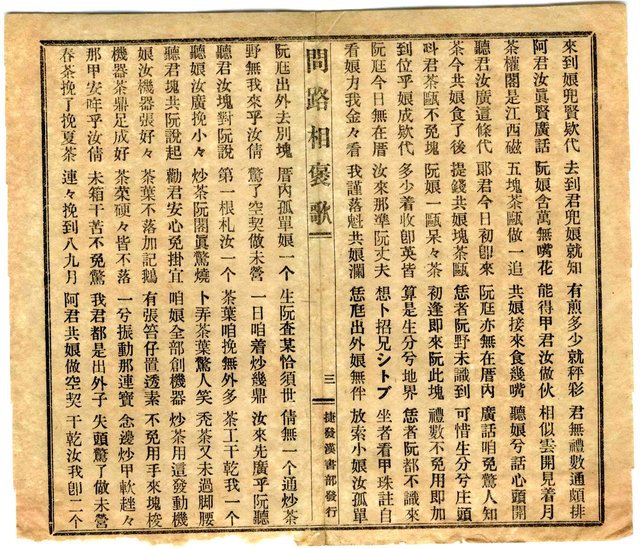 來到娘兜賢欵代 去到君兜娘就知 有煎多少就秤彩 君無禮數通頗排
阿君汝眞賢廣話 阮娘含萬無嘴花 能得甲君汝做伙 相似雲開見着月
茶櫳閣是江西磁 五塊茶甌做一追 共娘接來食幾嘴 聽娘兮話心頭開
聽君汝廣這條代 郎君今日初卽來 阮尪亦無在厝內 廣話咱免驚人知
茶今共娘食了後 提錢共娘塊茶甌 恁者阮野未識到 可惜生分兮庄頭
叫君茶甌不免塊 阮娘一甌呆々茶 初逢卽來阮此塊 禮數不免用卽加
到位乎娘成欵代 多少着收卽英皆 算是生分兮地界 恁者阮都不識來
阮尪今日無在厝 汝來那準阮丈夫 想卜招兄シトブ 坐者看甲珠註自
看娘力我金々看 我謹落魁共娘瀾 恁尪出外娘無伴 放索小娘汝孤單
問路相褒歌 三 捷發漢書部發行
阮尪出外去別塊 厝內孤單娘一个 生阮查某恰須世 倩無一个通炒茶
野無我來乎汝倩 驚了空契做未營 一日咱着炒幾鼎 汝來先廣乎阮聽
聽君汝塊對阮說 第一根札汝一个 茶葉咱挽無外多 茶工干乾我一个
聽娘汝廣挽小々 炒茶阮閣眞驚燒 卜弄茶葉驚人笑 禿茶又未過脚腰
聽君塊共阮說起 勸君安心免掛宜 咱娘全部創機器 炒茶用這發動機
娘汝機器張好々 茶葉不落加記鵝 有張笞仔置透素 不免用手來塊梭
機器茶鼎足成好 茶菜硬々皆不落 一兮振動那連寶 金邊炒甲軟 々
那甲安哖乎汝倩 未箱干苦不免驚 我君都是出外子 失頭驚了做未營
春茶挽了挽夏茶 連々挽到八九月 阿君共娘做空契 干乾汝我卽一个